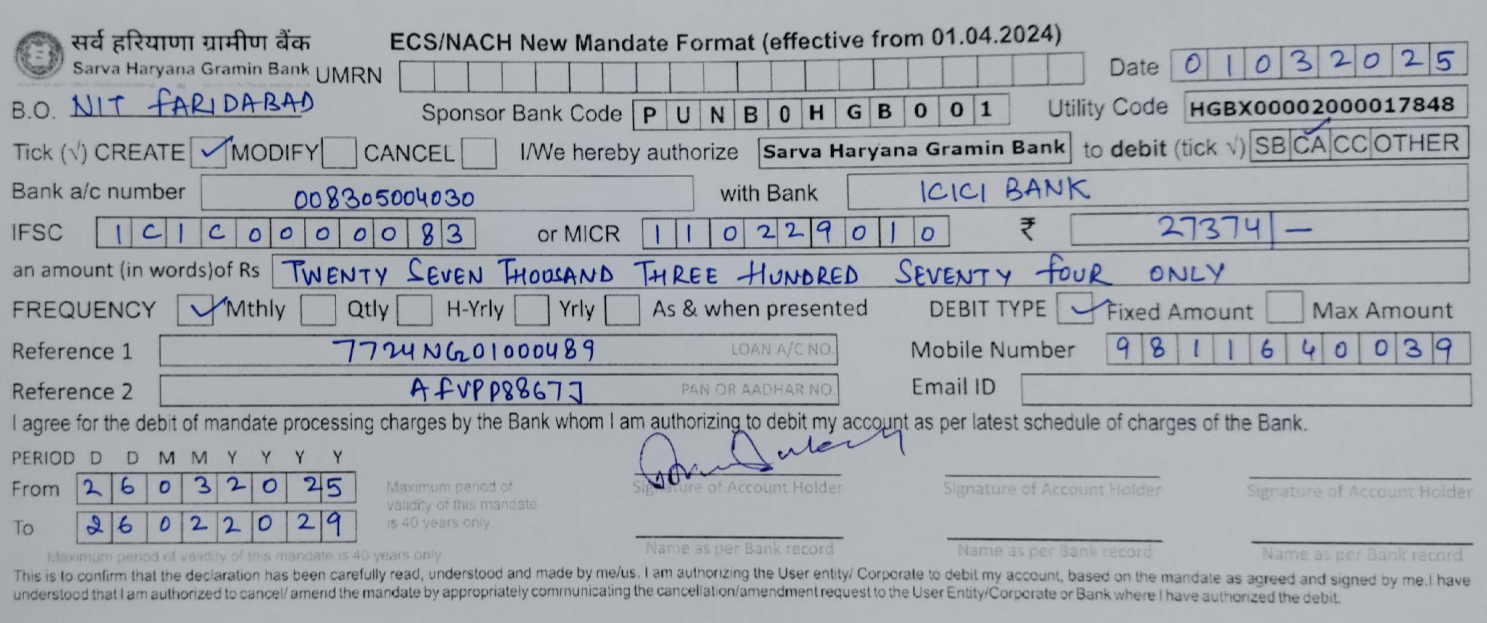 सर्व हरियाणा ग्रामीण बैंक
Sarva Haryana Gramin Bank
ECS/NACH New Mandate Format (effective from 01.04.2024)
UMRN
Date 01032025
B.O. NIT FARIDABAD
Sponsor Bank Code PUNB0HGB001
Utility Code HGBX00002000017848
Tick (√) CREATE ✓ MODIFY CANCEL I/We hereby authorize Sarva Haryana Gramin Bank to debit (tick √) SB CA ✓ CC OTHER
Bank a/c number 008305004030 with Bank ICICI BANK
IFSC ICIC0000083 or MICR 110229010 ₹ 27374/-
an amount (in words)of Rs TWENTY SEVEN THOUSAND THREE HUNDRED SEVENTY FOUR ONLY
FREQUENCY ✓ Mthly Qtly H-Yrly Yrly As & when presented DEBIT TYPE ✓ Fixed Amount Max Amount
Reference 1 7724NG01000489 LOAN A/C NO. Mobile Number 9811640039
Reference 2 AFVPP8867J PAN OR AADHAR NO. Email ID
I agree for the debit of mandate processing charges by the Bank whom I am authorizing to debit my account as per latest schedule of charges of the Bank.
PERIOD D D M M Y Y Y Y
From 26032025
To 26022029
Maximum period of
validity of this mandate
is 40 years only
Signature of Account Holder Signature of Account Holder Signature of Account Holder
Name as per Bank record Name as per Bank record Name as per Bank record
Maximum period of validity of this mandate is 40 years only
This is to confirm that the declaration has been carefully read, understood and made by me/us. I am authorizing the User entity/ Corporate to debit my account, based on the mandate as agreed and signed by me.I have
understood that I am authorized to cancel/ amend the mandate by appropriately communicating the cancellation/amendment request to the User Entity/Corporate or Bank where I have authorized the debit.